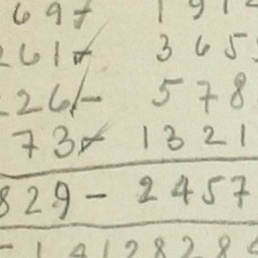 697 191
261 365
226/- 578
73 1321
829 - 2457
1 4128284